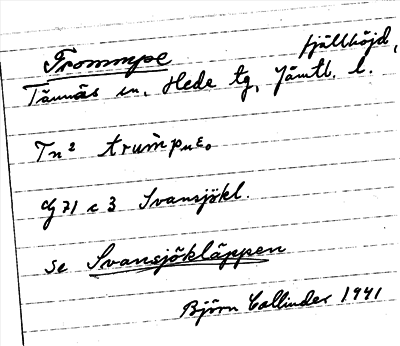 Trommpe fjällhöjd,
Tännäs sn, Hede tg, Jämtl. l.
Tn² trum̀pnɛ.
dj 71 c 3 Svansjökl.
se Svansjökläppen
Björn Collinder 1941